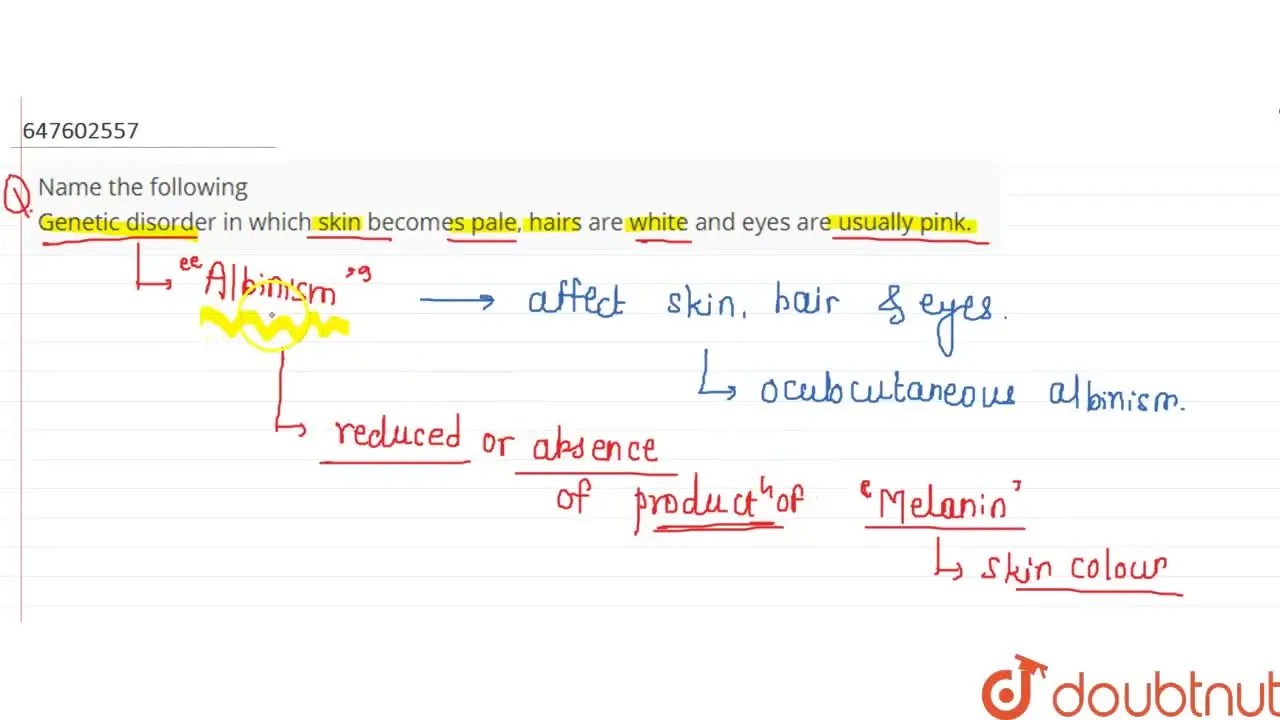 647602557
Q. Name the following
Genetic disorder in which skin becomes pale, hairs are white and eyes are usually pink.
"Albinism" → affect skin, hair & eyes.
ocubcutaneous albinism.
reduced or absence
of productⁿ of 'Melanin'
skin colour
doubtnut